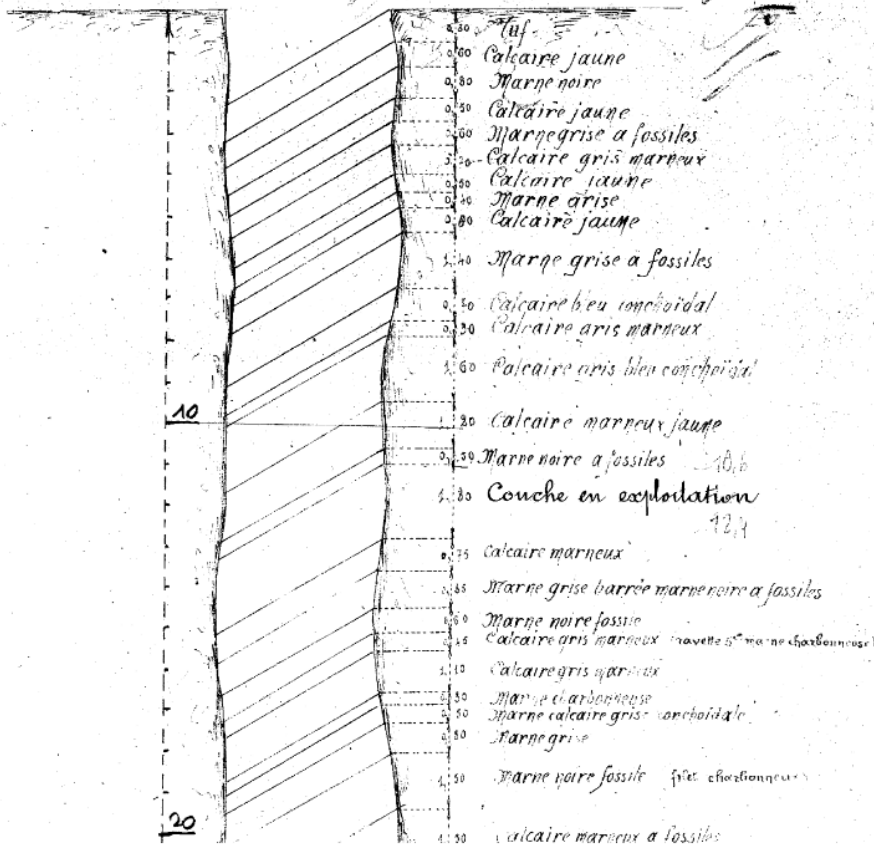 0,80 Tuf
0,60 Calcaire jaune
0,80 Marne noire
0,50 Calcaire jaune
0,60 Marne grise a fossiles
Calcaire gris marneux
0,50 Calcaire jaune
Marne grise
0,80 Calcaire jaune
1,40 Marne grise a fossiles
Calcaire bleu conchoïdal
0,30 Calcaire gris marneux
1,60 Calcaire gris bleu conchoïdal
10
Calcaire marneux jaune
Marne noire a fossiles 10,6
1,80 Couche en exploitation
12,4
0,75 Calcaire marneux
Marne grise barrée marne noire a fossiles
0,60 Marne noire fossile
Calcaire gris marneux marne charbonneuse
1,10 Calcaire gris marneux
Marne charbonneuse
Marne calcaire grise conchoïdale
Marne grise
1,50 Marne noire fossile charbonneux
20
Calcaire marneux a fossiles